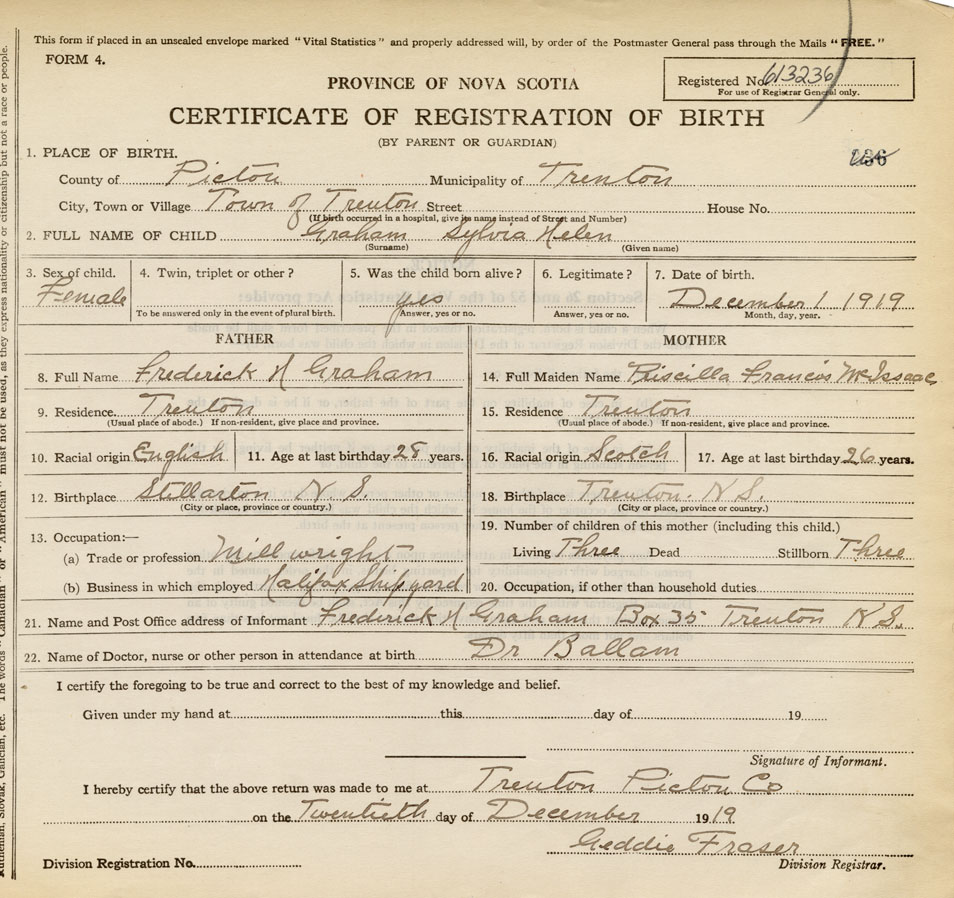 This form if placed in an unsealed envelope marked "Vital Statistics" and properly addressed will, by order of the Postmaster General pass through the Mails "FREE."
FORM 4.
Registered No. 613236
For use of Registrar General only.
PROVINCE OF NOVA SCOTIA
CERTIFICATE OF REGISTRATION OF BIRTH
(BY PARENT OR GUARDIAN)
1. PLACE OF BIRTH.
County of Picton Municipality of Trenton
City, Town or Village Town of Trenton Street House No.
(If birth occurred in a hospital, give its name instead of Street and Number)
2. FULL NAME OF CHILD Graham Sylvia Helen
(Surname) (Given name)
3. Sex of child. 4. Twin, triplet or other? 5. Was the child born alive? 6. Legitimate? 7. Date of birth.
Female yes December 1 1919
To be answered only in the event of plural birth. Answer, yes or no. Answer, yes or no. Month, day, year.
FATHER MOTHER
8. Full Name Frederick H Graham 14. Full Maiden Name Priscilla Francis McIssac
9. Residence. Trenton 15. Residence Trenton
(Usual place of abode.) If non-resident, give place and province. (Usual place of abode.) If non-resident, give place and province.
10. Racial origin English 11. Age at last birthday 28 years. 16. Racial origin Scotch 17. Age at last birthday 26 years.
12. Birthplace Stellarton N. S. 18. Birthplace Trenton. N S.
(City or place, province or country.) (City or place, province or country.)
13. Occupation:— 19. Number of children of this mother (including this child.)
(a) Trade or profession Millwright Living Three Dead Stillborn Three
(b) Business in which employed Halifax Shipyard 20. Occupation, if other than household duties
21. Name and Post Office address of Informant Frederick H Graham Box 35 Trenton N S.
22. Name of Doctor, nurse or other person in attendance at birth Dr Ballam
I certify the foregoing to be true and correct to the best of my knowledge and belief.
Given under my hand at this day of 19
Signature of Informant.
I hereby certify that the above return was made to me at Trenton Picton Co
on the Twentieth day of December 1919
Geddie Fraser
Division Registration No. Division Registrar.
Ruthenian, Slovak, Galician, etc. The words "Canadian" or "American" must not be used, as they express nationality or citizenship but not a race or people.